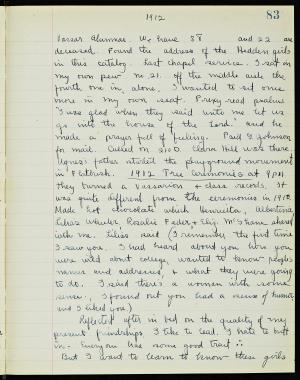 1912
83
Vassar Alumnae. We have 38 and 22 are
deceased. Found the address of the Hadden girls
in this catalog. Last chapel service. I sat in
my own pew no. 21. off the middle aisle the
fourth one in, alone. I wanted to sit once
more in my own seat. Prexy read psalms
"I was glad when they said unto me let us
go into the house of the Lord." and he
made a prayer full of feeling. Paul E Johnson
for mail. Called on Clara Hill was there.
Agnes's father started the playground movement
in Flatbush. 1912 Tree Ceremonies at 9 P.M.
they burned a Vassarion + class records. It
was quite different from the ceremonies in 1910.
Made hot chocolate which Henrietta, Albertina
Lilias Wheeler Rosalie + shared
with me. Lilias said (I remember the first time
I saw you. I had heard about you how you
were wild about college, wanted to know people's
names and addresses, + what they were going
to do. I said there's a woman with some
sense, I found out you had a sense of humor
and I liked you)
Reflected after in bed on the quality of my
present friendships. I like to lead. I hate to butt
in. Everyone has some good trait ∴
But I want to learn to know these girls